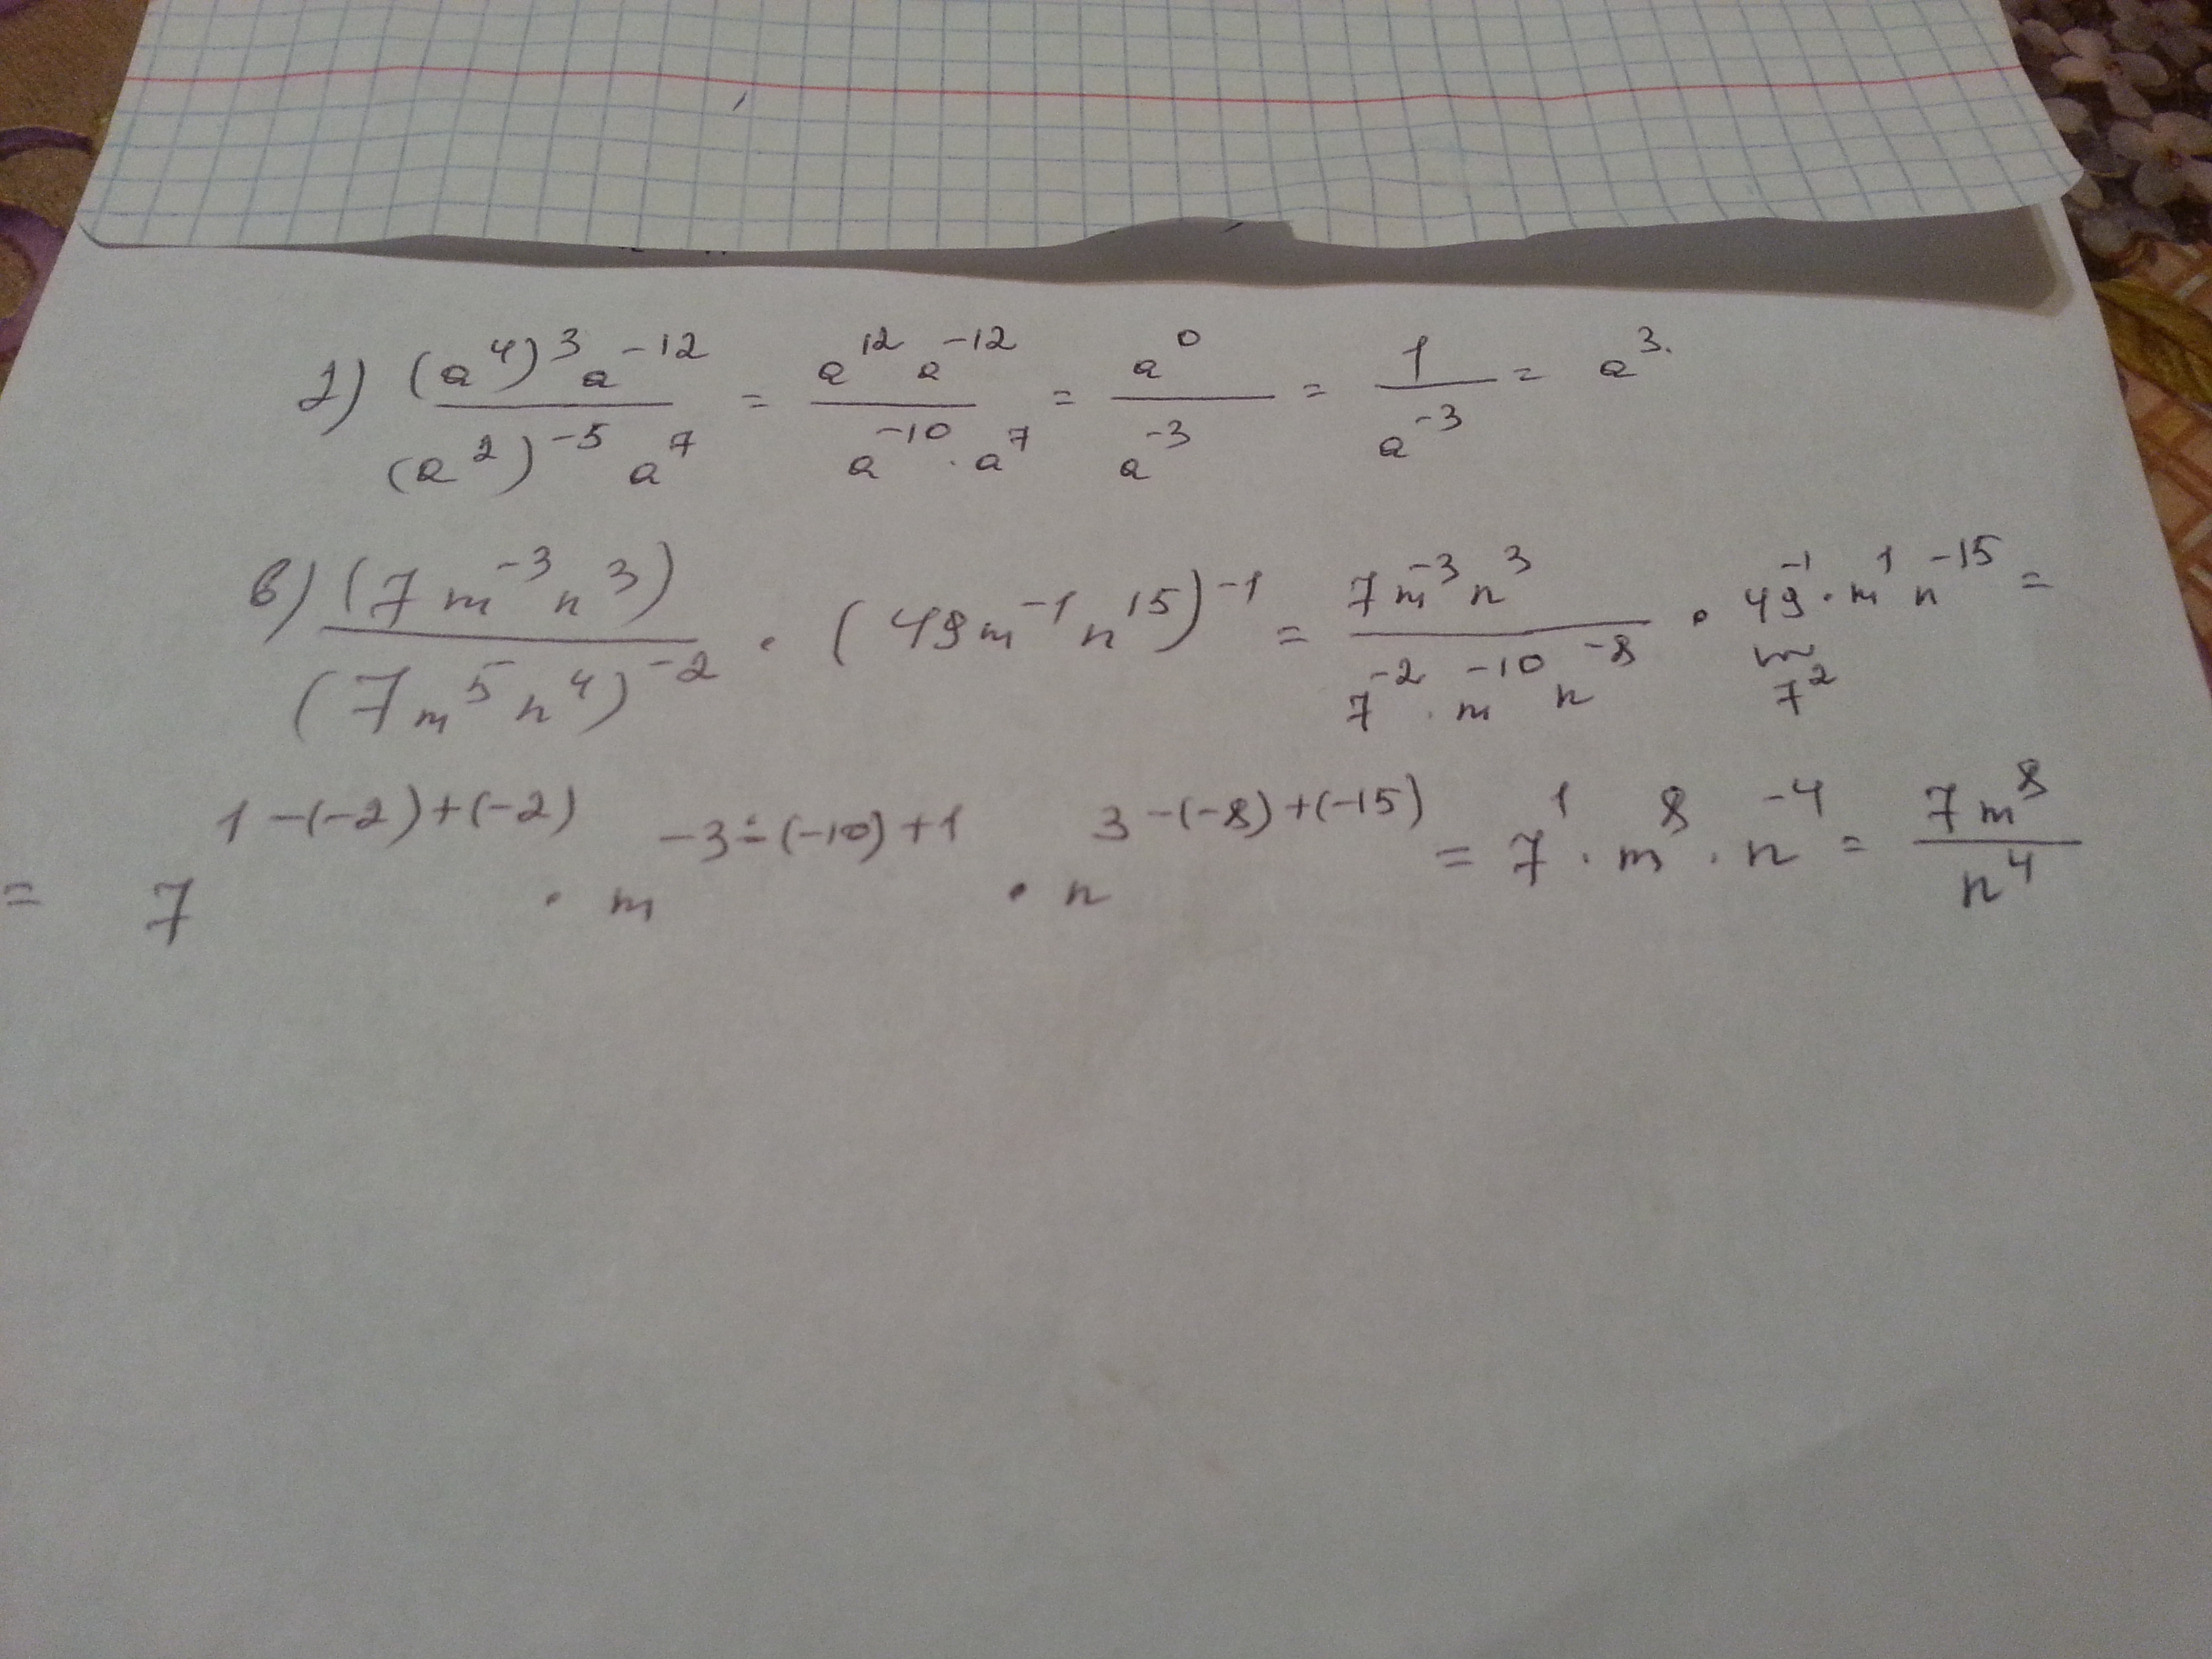 2) \frac{(a^4)^3 a^{-12}}{(a^2)^{-5} a^7} = \frac{a^{12} a^{-12}}{a^{-10} \cdot a^7} = \frac{a^0}{a^{-3}} = \frac{1}{a^{-3}} = a^3.
в) \frac{(7m^{-3}n^3)}{(7m^5n^4)^{-2}} \cdot (49m^{-1}n^{15})^{-1} = \frac{7m^{-3}n^3}{7^{-2} \cdot m^{-10} n^{-8}} \cdot \underbrace{49}_{7^2}^{-1} \cdot m^1 n^{-15} =
= 7^{1-(-2)+(-2)} \cdot m^{-3-(-10)+1} \cdot n^{3-(-8)+(-15)} = 7^1 \cdot m^8 \cdot n^{-4} = \frac{7m^8}{n^4}